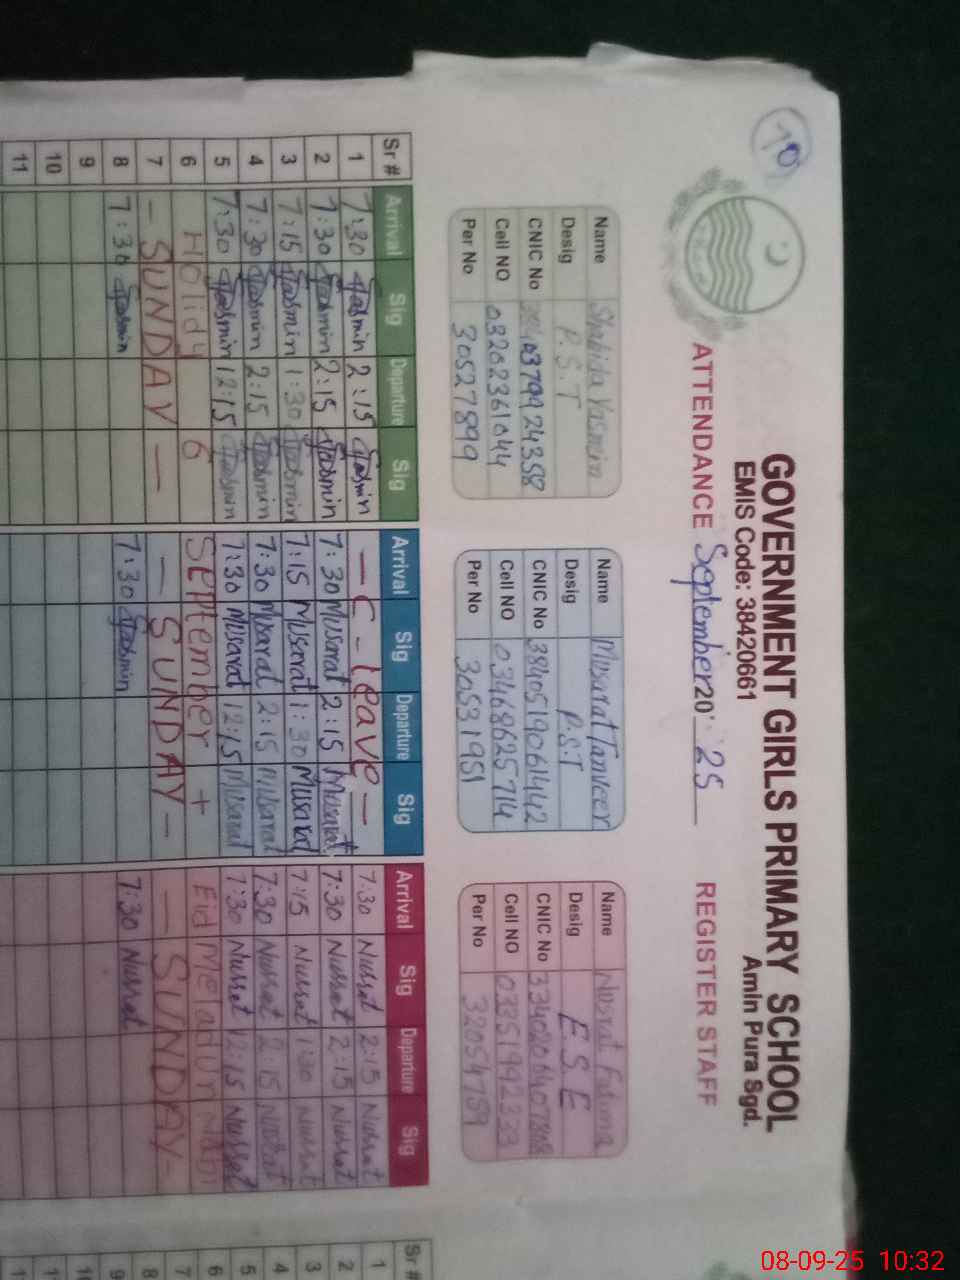 70
GOVERNMENT GIRLS PRIMARY SCHOOL
EMIS Code: 38420661 Amin Pura Sgd.
ATTENDANCE September 20 25 REGISTER STAFF
Name Shahida Yasmin
Desig P.S.T
CNIC No
Cell NO 03202361044
Per No 30527899
Name Musarat Tanveer
Desig P.S.T
CNIC No 3840519061442
Cell NO 03468625714
Per No 30531951
Name Nusrat Fatima
Desig E.S.E
CNIC No
Cell NO 03351992333
Per No
Sr # Arrival Sig Departure Sig Arrival Sig Departure Sig Arrival Sig Departure Sig
1 7:30 Yasmin 2:15 Yasmin — C-leave — 7:30 Nusrat 2:15 Nusrat
2 7:30 Yasmin 2:15 Yasmin 7:30 Musarat 2:15 Musarat 7:30 Nusrat 2:15 Nusrat
3 7:15 Yasmin 1:30 Yasmin 7:15 Musarat 1:30 Musarat 7:15 Nusrat 1:30 Nusrat
4 7:30 Yasmin 2:15 Yasmin 7:30 Musarat 2:15 Musarat 7:30 Nusrat 2:15 Nusrat
5 7:30 Yasmin 12:15 Yasmin 7:30 Musarat 12:15 Musarat 7:30 Nusrat 12:15 Nusrat
6 Holidy 6 September + Eid Meladun Nabi
7 — SUNDAY — — SUNDAY — — SUNDAY —
8 7:30 Yasmin 7:30 Yasmin 7:30 Nusrat
9
10
11
Sr #
1
2
3
4
5
6
7
8
9
08-09-25 10:32